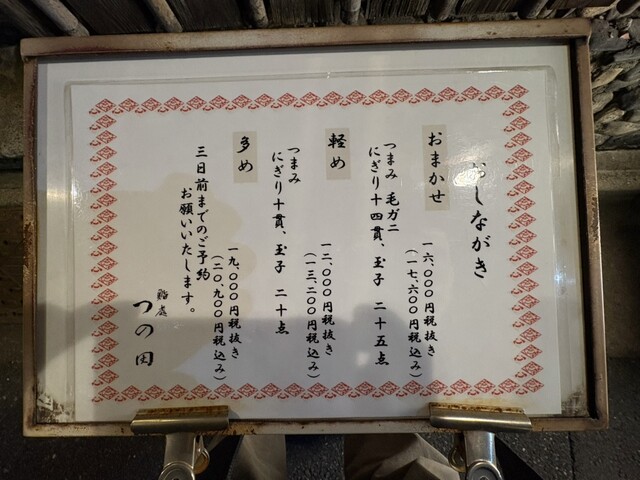 おしながき
おまかせ
一六、〇〇〇円税抜き
(一七、六〇〇円税込み)
つまみ 毛ガニ
にぎり十四貫、玉子 二十五点
軽め
一二、〇〇〇円税抜き
(一三、二〇〇円税込み)
つまみ
にぎり十貫、玉子 二十点
多め
一九、〇〇〇円税抜き
(二〇、九〇〇円税込み)
三日前までのご予約
お願いいたします。
鮨處
つの田